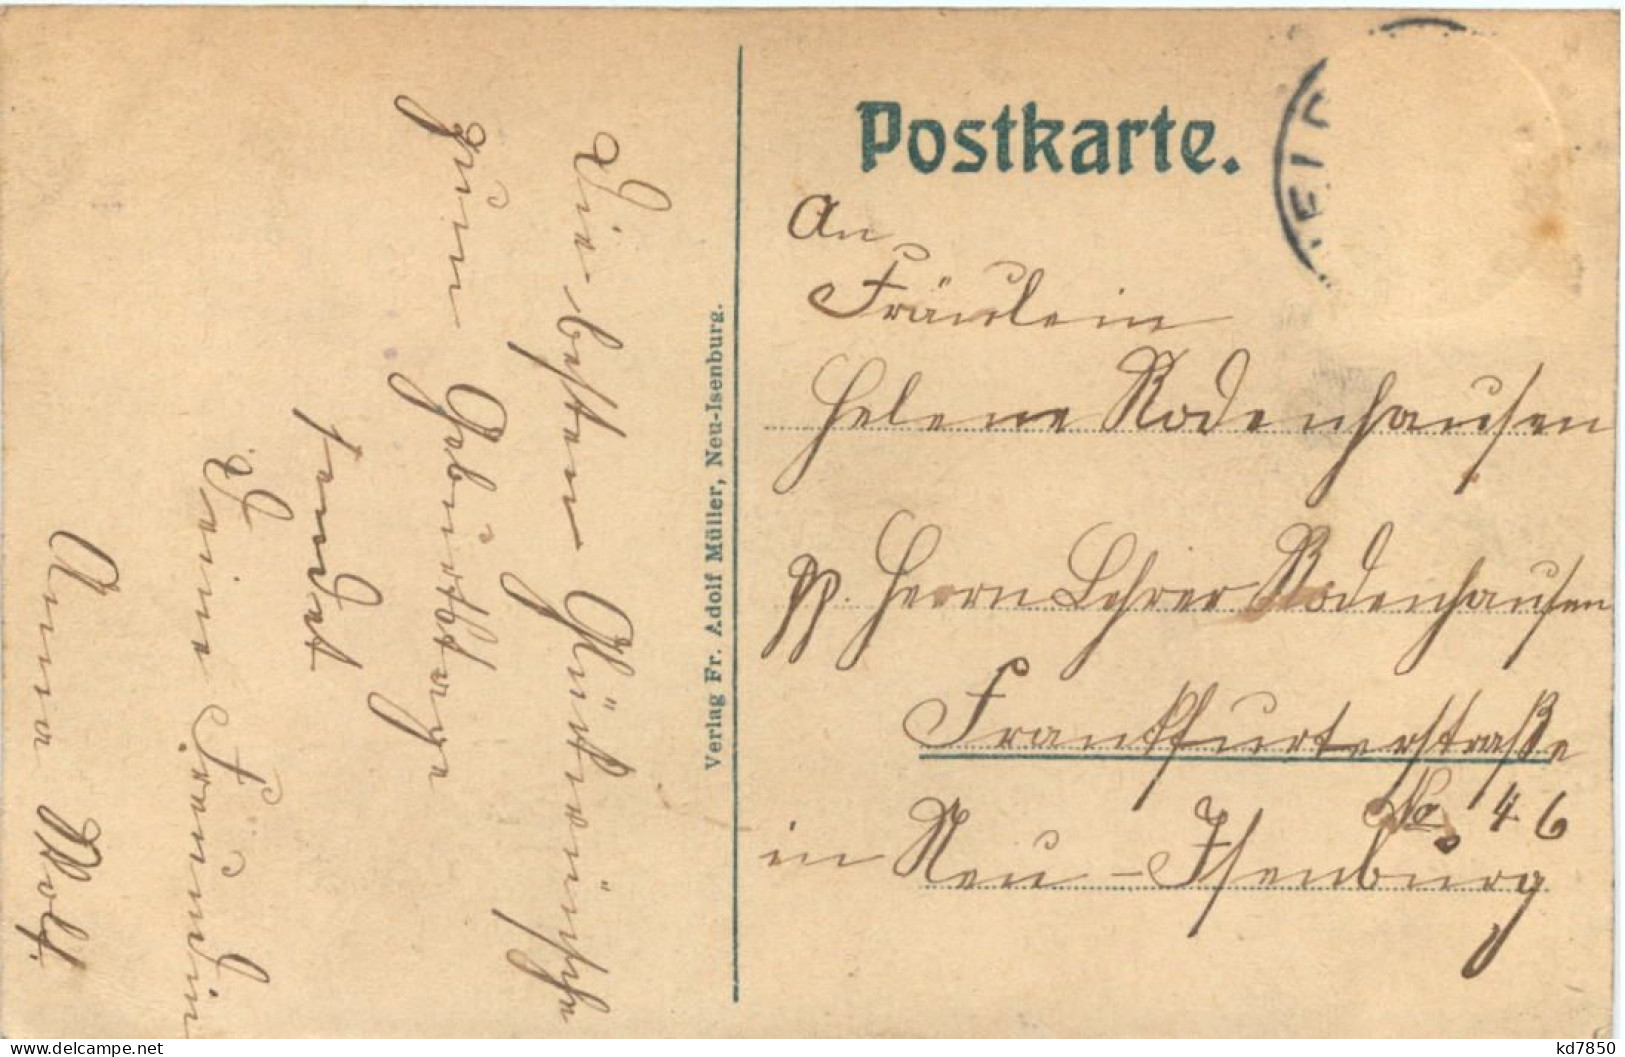 Die besten Glückwünsche
zum Geburtstage
sendet
Deine Freundin
Anna Wolf.
Verlag Fr. Adolf Müller, Neu-Isenburg.
Postkarte.
An
Fräulein
Helene Rodenhausen
pp. Herrn Lehrer Rodenhausen
Frankfurterstraße
No 46
in Neu-Isenburg
kd7850